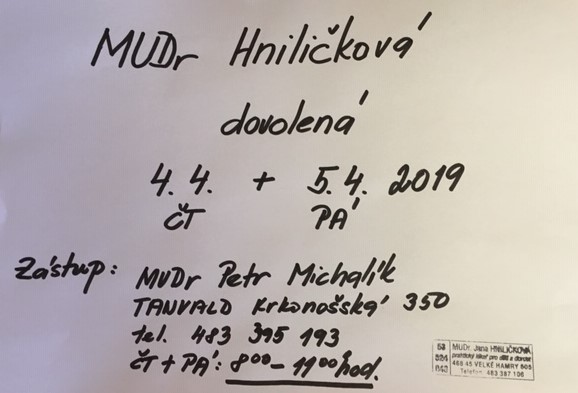 MUDr Hniličková
dovolená
4.4. + 5.4. 2019
ČT PÁ
Zástup: MUDr Petr Michalík
TANVALD Krkonošská 350
tel. 483 395 193
ČT + PÁ: 8⁰⁰ - 11⁰⁰ hod.
MUDr. Jana HNILIČKOVÁ
praktický lékař pro děti a dorost
468 45 VELKÉ HAMRY 605
Telefon